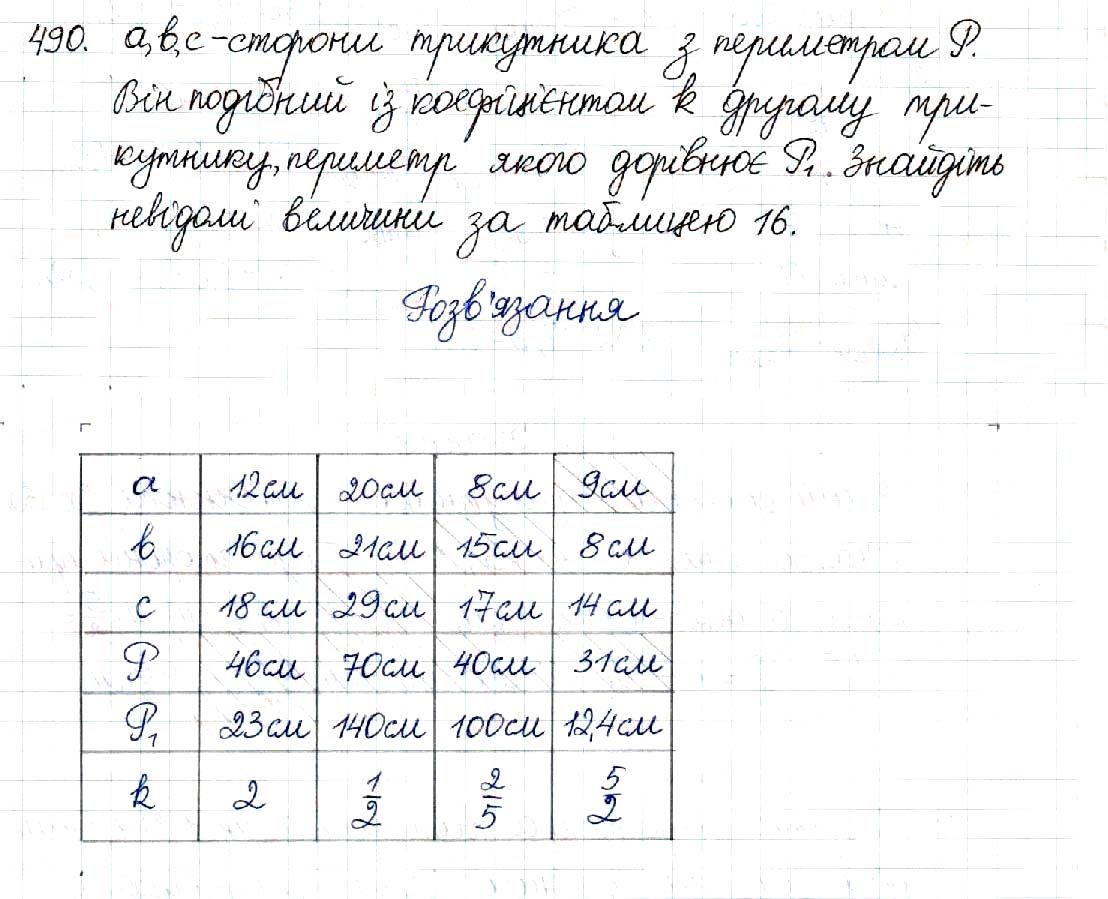 490. а,в,с-сторони трикутника з периметром P.
Він подібний із коефіцієнтом k другому три-
кутнику, периметр якого дорівнює P₁. Знайдіть
невідомі величини за таблицею 16.
Розв'язання
а 12см 20см 8см 9см
в 16см 21см 15см 8см
с 18см 29см 17см 14см
P 46см 70см 40см 31см
P₁ 23см 140см 100см 12,4см
k 2 1/2 2/5 5/2